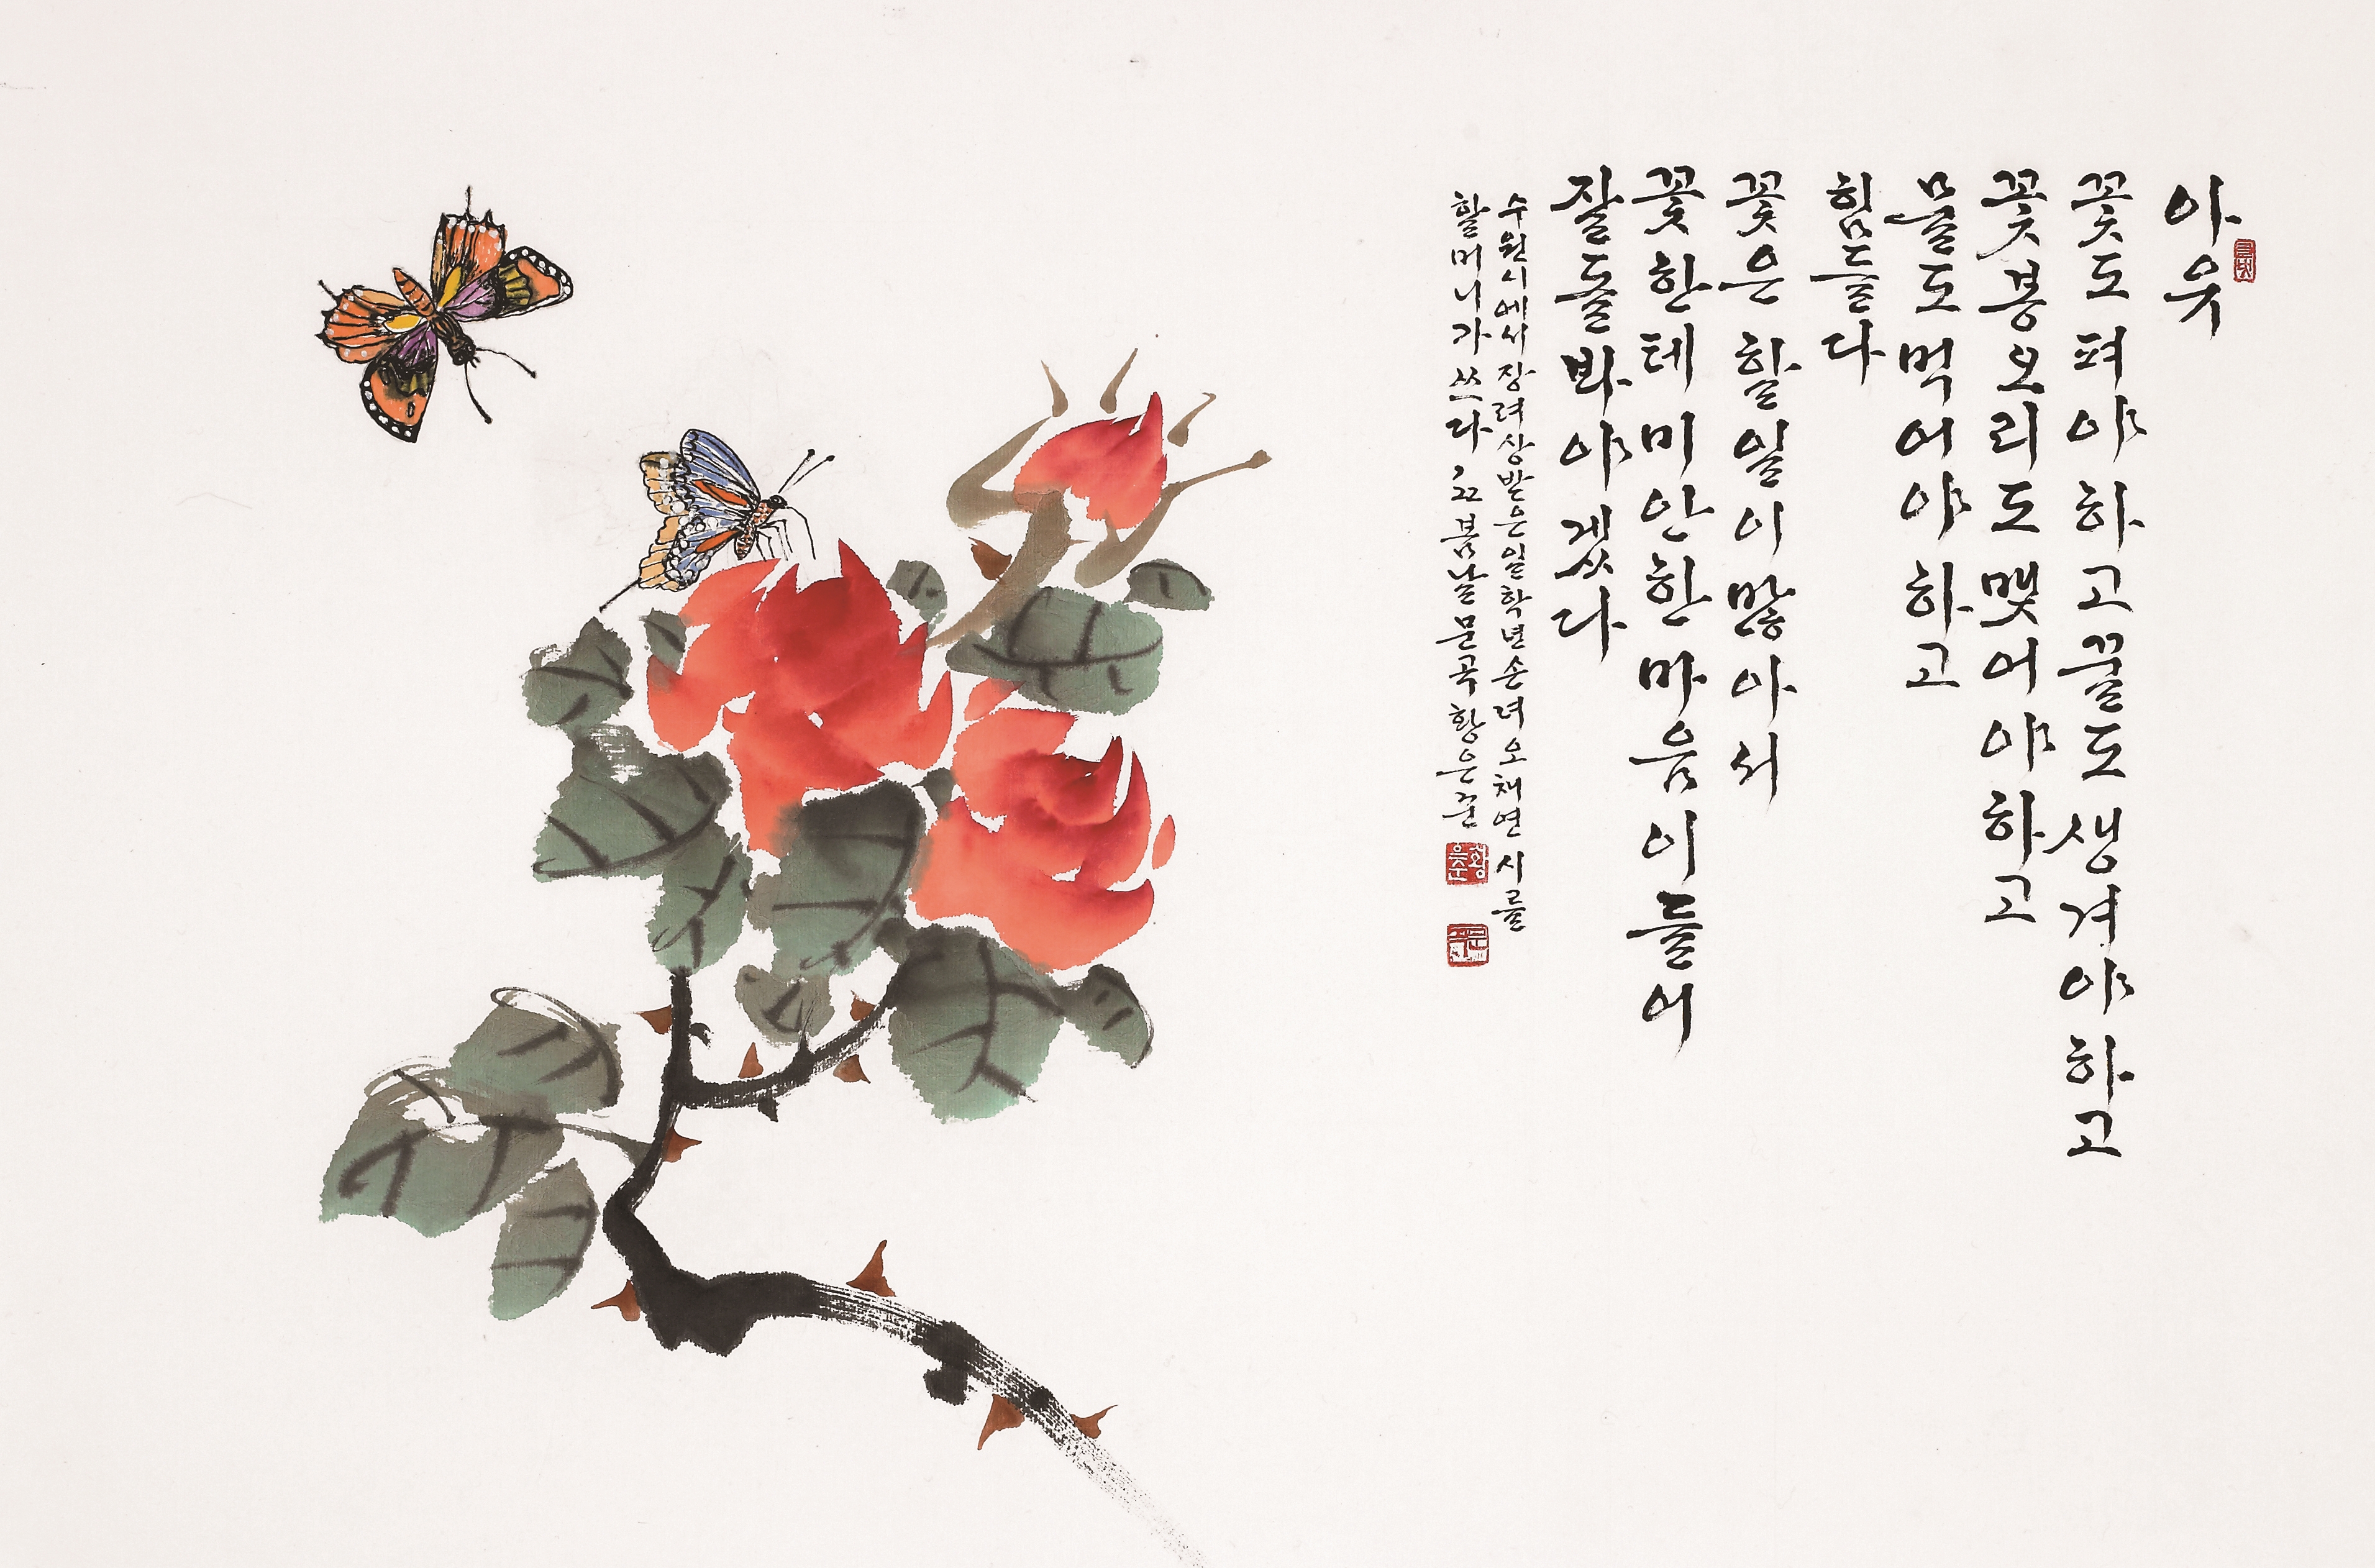 아유
꽃도 펴야 하고 꿀도 생겨야 하고
꽃봉오리도 맺어야 하고
물도 먹어야 하고
힘들다
꽃은 할 일이 많아서
꽃한테 미안한 마음이 들어
잘 돌봐야겠다
수원시에서 장려상 받은 일학년 손녀 오채연 시를
할머니가 쓰다 22 봄날 문곡 황은준